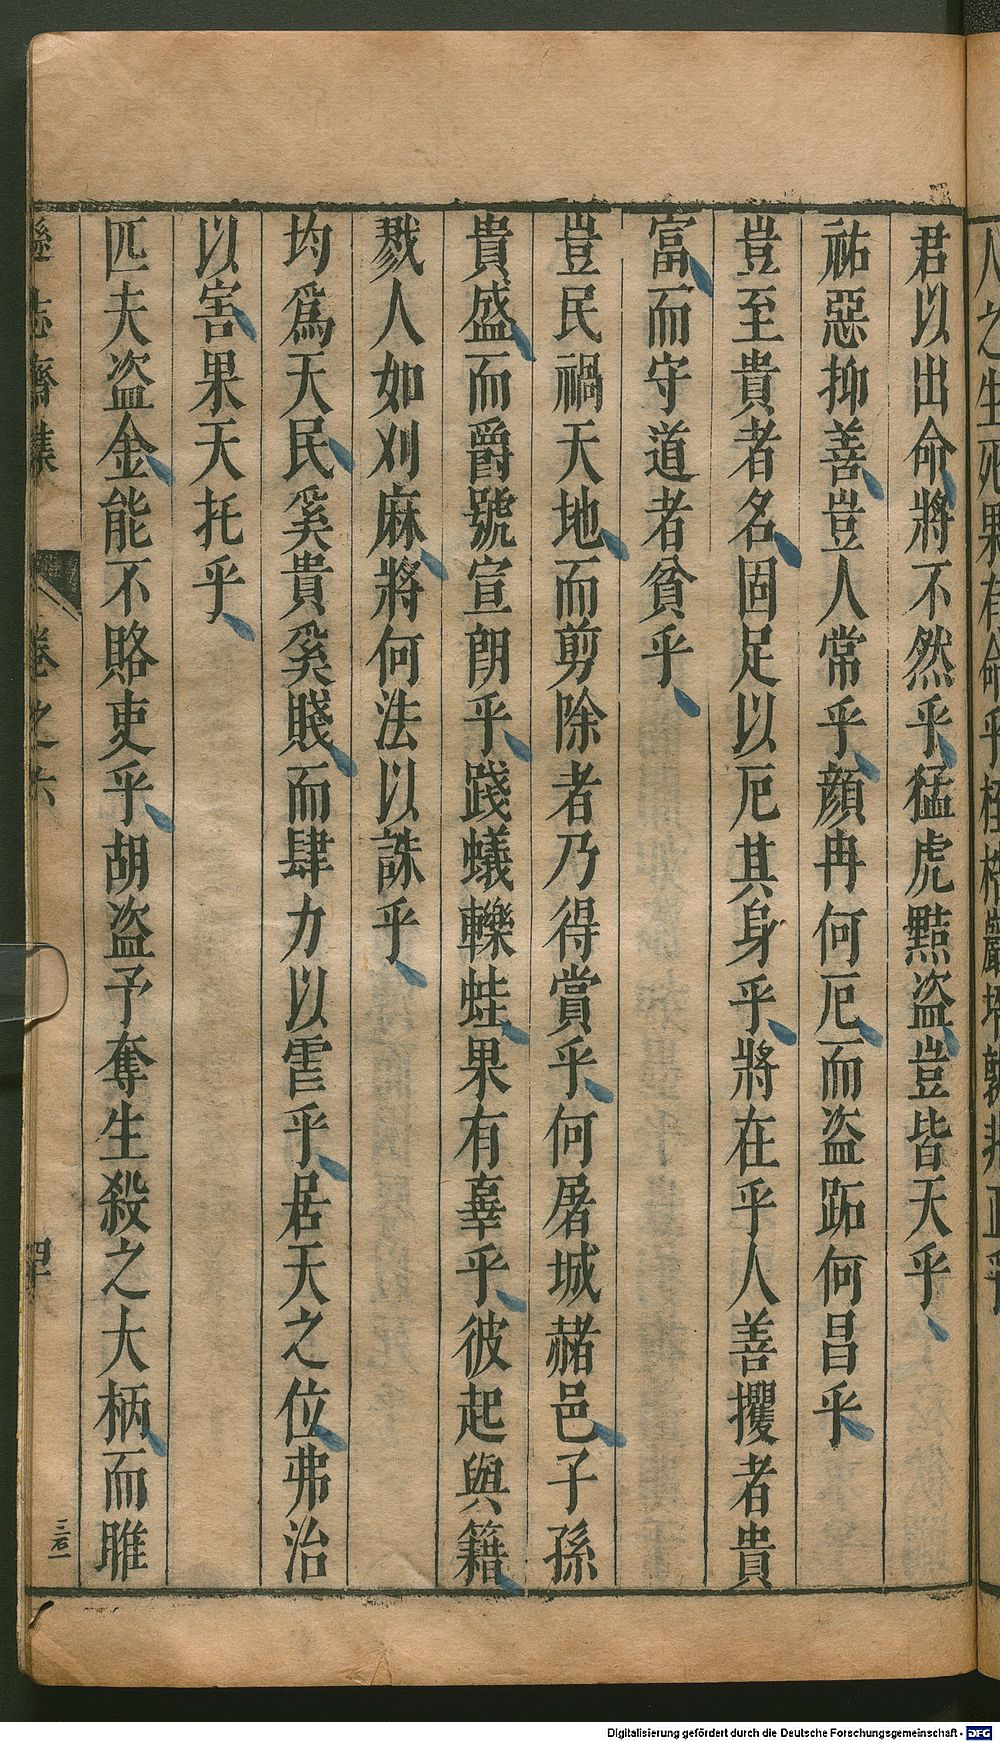 君以出命將不然乎猛虎黠盜豈皆天乎
祐惡抑善豈人常乎顔冉何厄而盜跖何昌乎
豈至貴者名固足以厄其身乎將在乎人善攫者貴
富而守道者貧乎
豈民禍天地而剪除者乃得賞乎何屠城赭邑子孫
貴盛而爵號宣朗乎踐蟻轢蛙果有辜乎彼起與籍
戮人如刈麻將何法以誅乎
均爲天民奚貴奚賤而肆力以虐乎居天之位弗治
以害果天托乎
匹夫盜金能不賂吏乎胡盜予奪生殺之大柄而雎
志齋集
卷之六
Digitalisierung gefördert durch die Deutsche Forschungsgemeinschaft - DFG